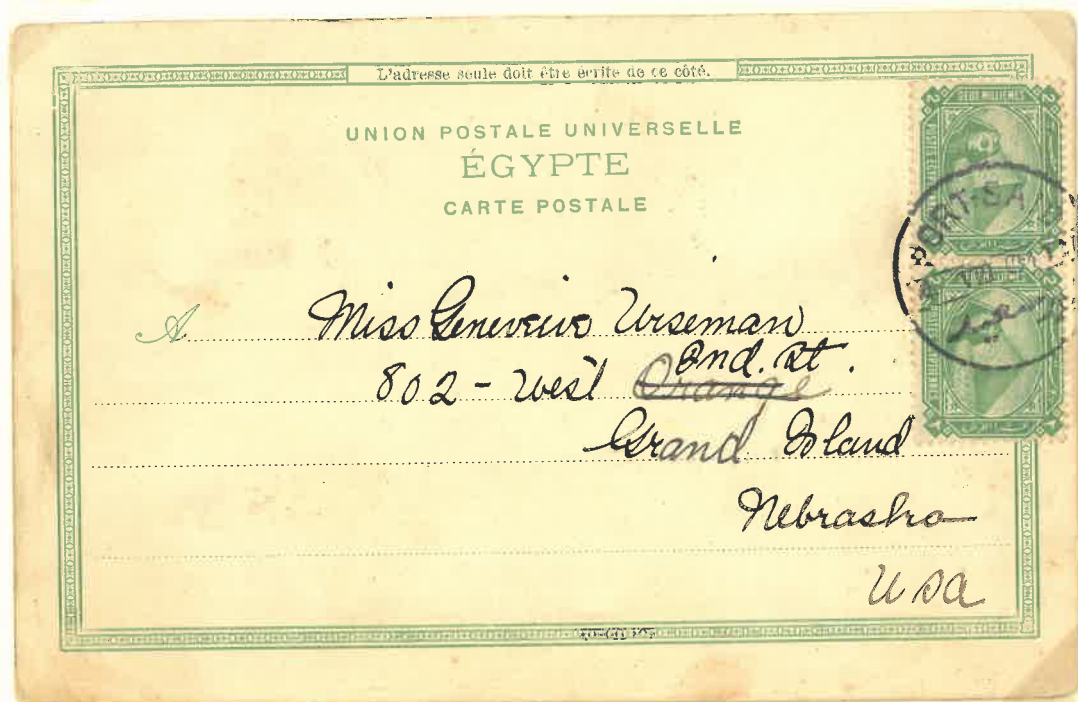 L'adresse seule doit être écrite de ce côté.
UNION POSTALE UNIVERSELLE
ÉGYPTE
CARTE POSTALE
PORT-SAID
A Miss Genevieve Wiseman
2nd. St.
802 - West Orange
Grand Island
Nebraska
USA